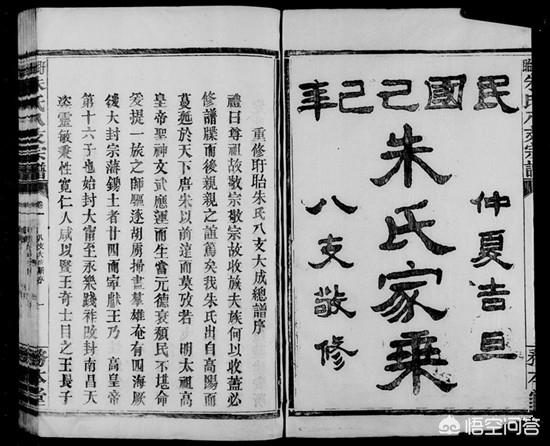 民國己巳年
仲夏吉旦
朱氏家乘
八支敬修
重修盱眙朱氏八支大成總譜序
禮曰尊祖故敬宗敬宗故收族夫族何以收蓋必
修譜牒而後親親之誼篤矣我朱氏出自高陽而
蔓延於天下唐朱以前遠而莫攷若 明太祖高
皇帝聖神文武應運而生當元德衰頹民不堪命
爰提一族之師驅逐胡虜掃盡羣雄奄有四海厥
後大封宗藩錫土者廿四而寧獻王乃 高皇帝
第十六子也始封大甯至永樂踐祚改封南昌天
姿靈敏秉性寬仁人咸以賢王奇士目之王長子
朱氏八支宗譜
卷一
務本堂
悟空问答